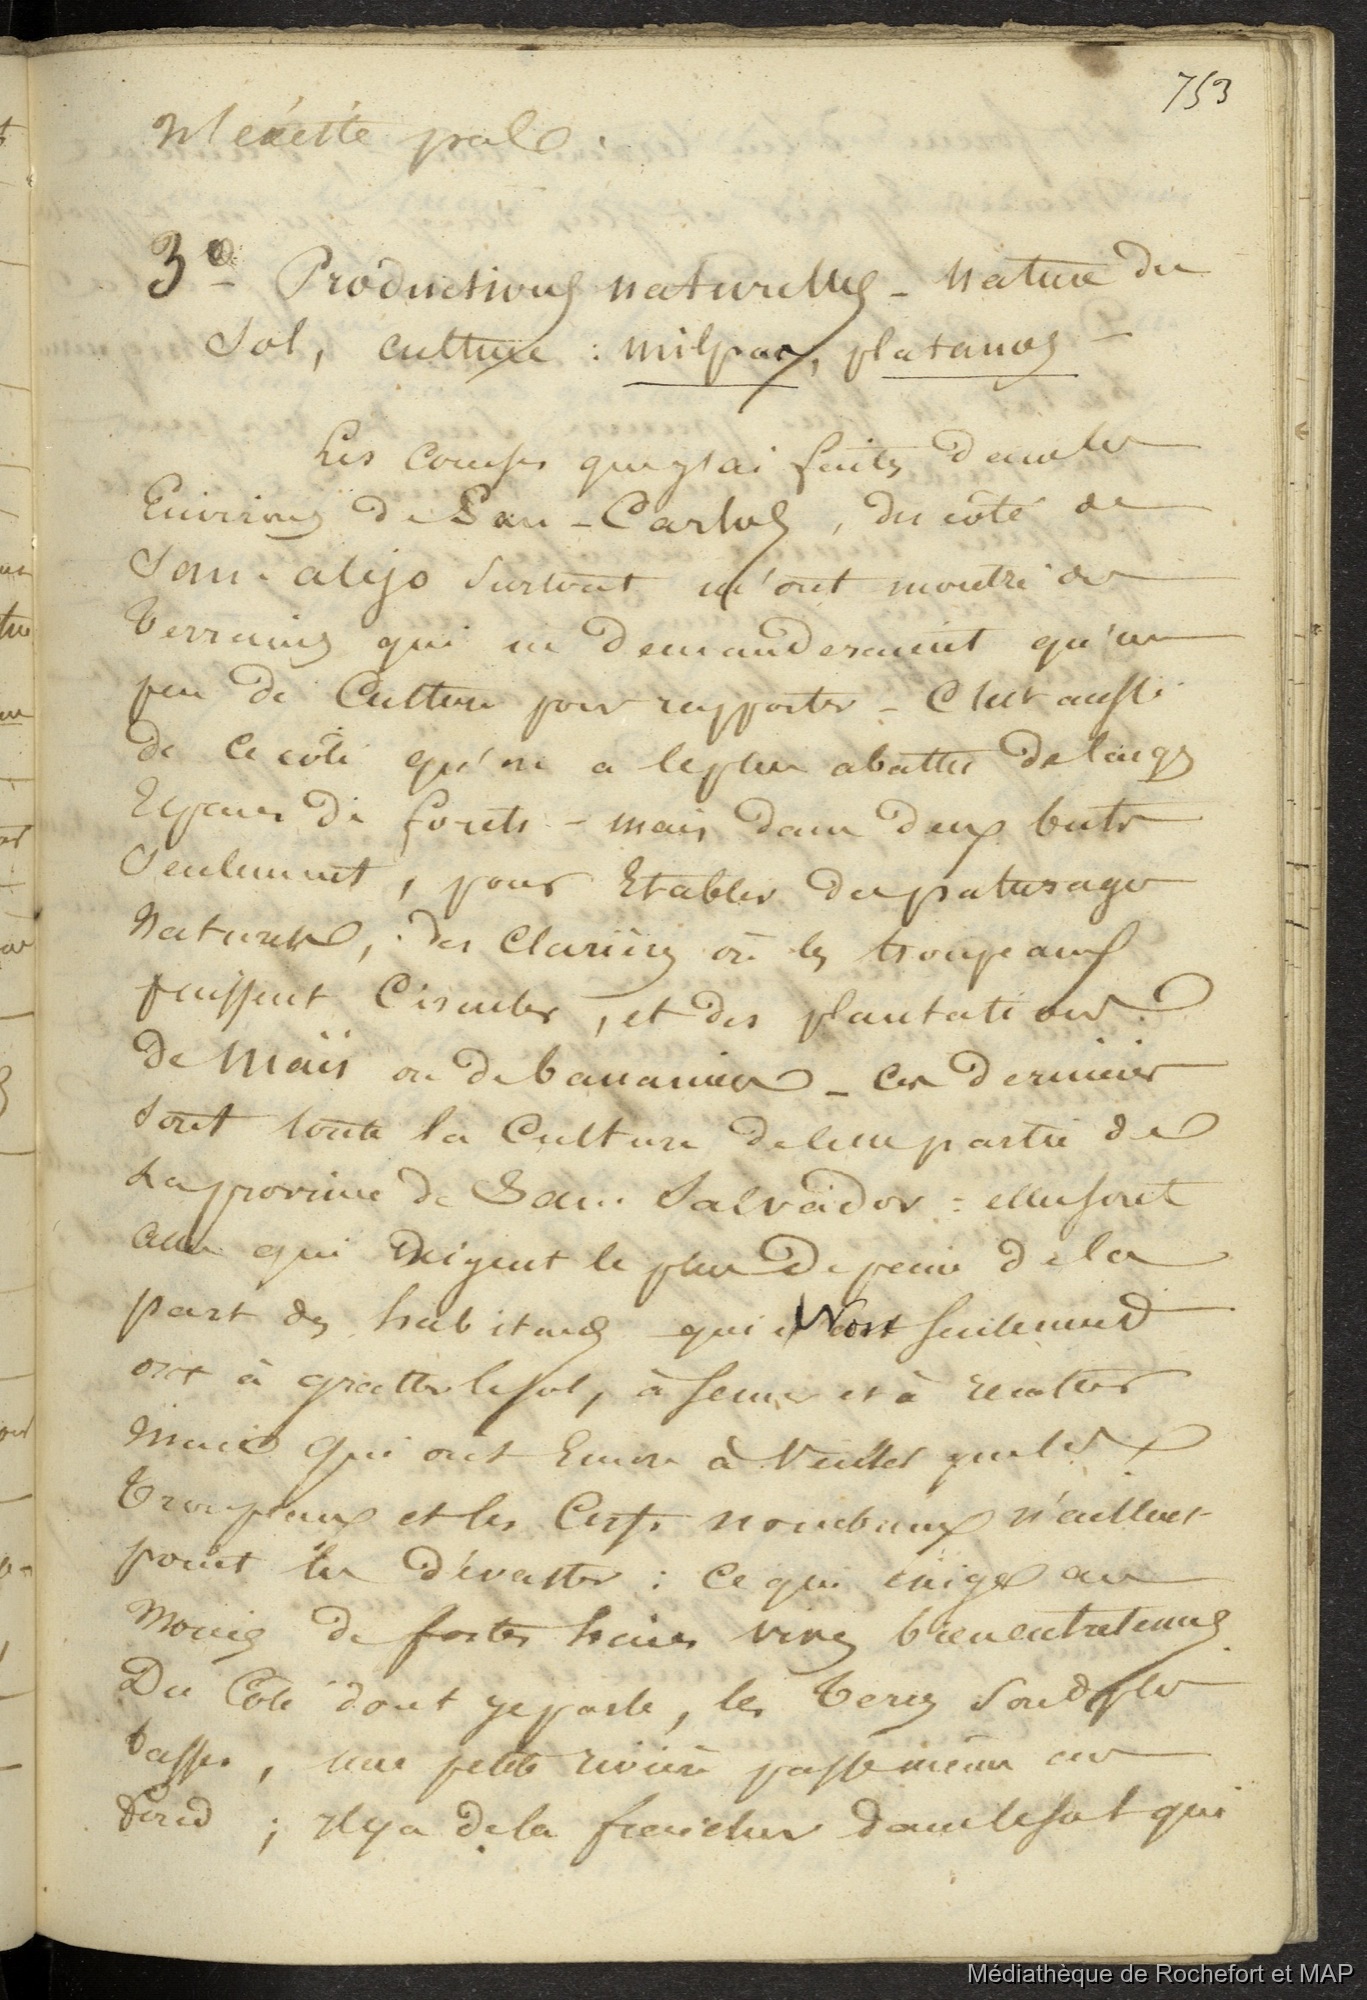 753
n'existe pas.
3º- Productions naturelles - Nature du
Sol, culture : milpas, platanos -
Les courses que j'ai faites dans les
Environs de San-Carlos, du côté de
San-alejo surtout m'ont montré des
terrains qui ne demanderaient qu'un
peu de Culture pour rapporter - C'est aussi
de ce côté qu'on a le plus abattu de larges
Espaces de forêts - mais dans deux buts
Seulement, pour Etablir des paturages
Naturels, des Clarières où les troupeaux
puissent Circuler, et des plantations
de Maïs ou de bananiers - ces dernières
sont toute la Culture de cette partie de
La province de San Salvador : elles sont
celles qui Exigent le plus de peine de la
part des habitants qui Non seulement
ont à gratter le sol, à semer et à récolter
Mais qui ont Encore à Veiller que les
Troupeaux et les Cerfs nombreux n'aillent
point les dévaster : ce qui exige au
Moins de fortes haies vives bien entretenues
Du Côté dont je parle, les terres sont plus
basses, une petite rivière passe même au
fond ; Il y a de la fraicheur dans le sol qui
Médiathèque de Rochefort et MAP